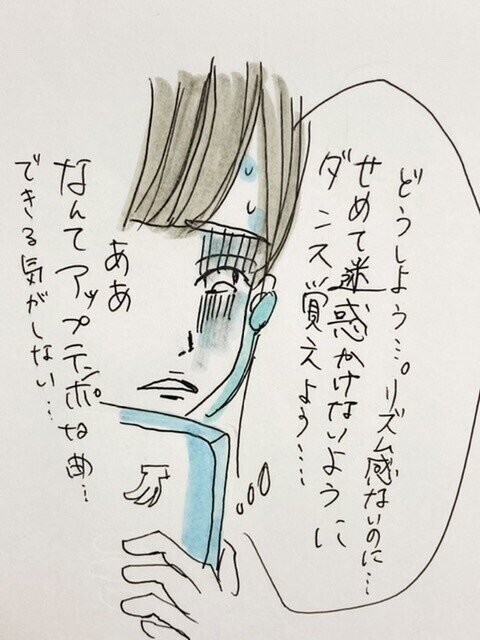 どうしよう…。リズム感ないのに…
せめて迷惑かけないように
ダンス覚えよう…
ああ
なんてアップテンポな曲…
できる気がしない…